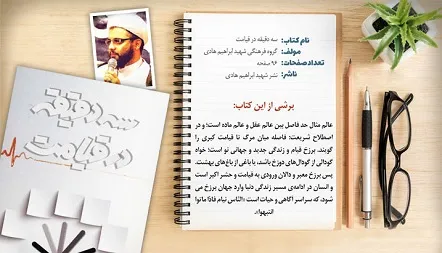 نام کتاب: سه دقیقه در قیامت
مولف:
گروه فرهنگی شهید ابراهیم هادی
تعداد صفحات: ۹۶ صفحه
ناشر: نشر شهید ابراهیم هادی
برشی از این کتاب:
عالم مثال حد فاصل بین عالم عقل و عالم ماده است؛ و در
اصطلاح شریعت؛ فاصله میان مرگ تا قیامت کبری را
گویند. برزخ قیام و زندگی جدید و جهانی نو است؛ خواه
گودالی از گودال‌های دوزخ باشد، یا باغی از باغ‌های بهشت.
پس برزخ معبر و دالان ورودی به قیامت و حشر اکبر است
و انسان در ادامه‌ی مسیر زندگی دنیا وارد جهان برزخ می
شود، که سراسر آگاهی و حیات است «الناس نیام فاذا ماتوا
انتبهوا»
سه دقیقه
در قیامت